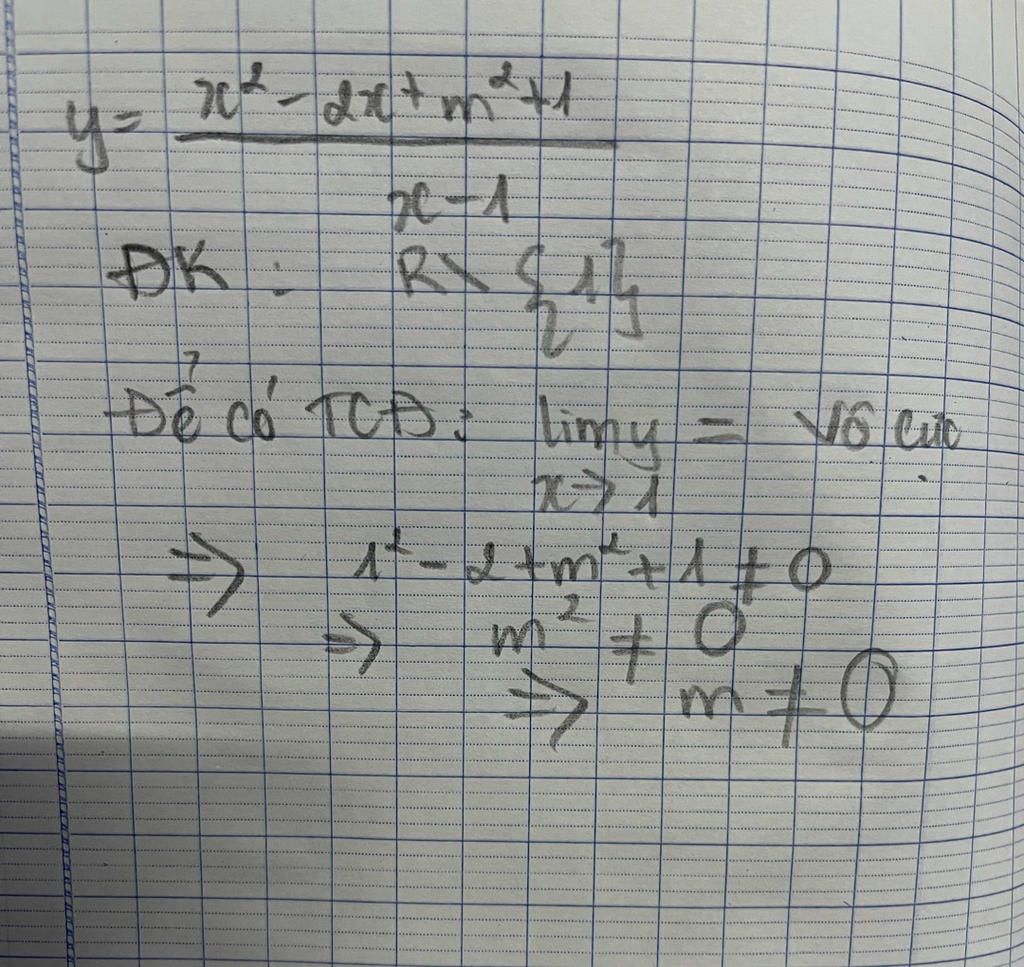 y = \frac{x² - 2x + m² + 1}{x - 1}
ĐK : R \ {1}
Để có TCĐ : lim y = vô cực
x → 1
⇒ 1² - 2 + m² + 1 ≠ 0
⇒ m² ≠ 0
⇒ m ≠ 0